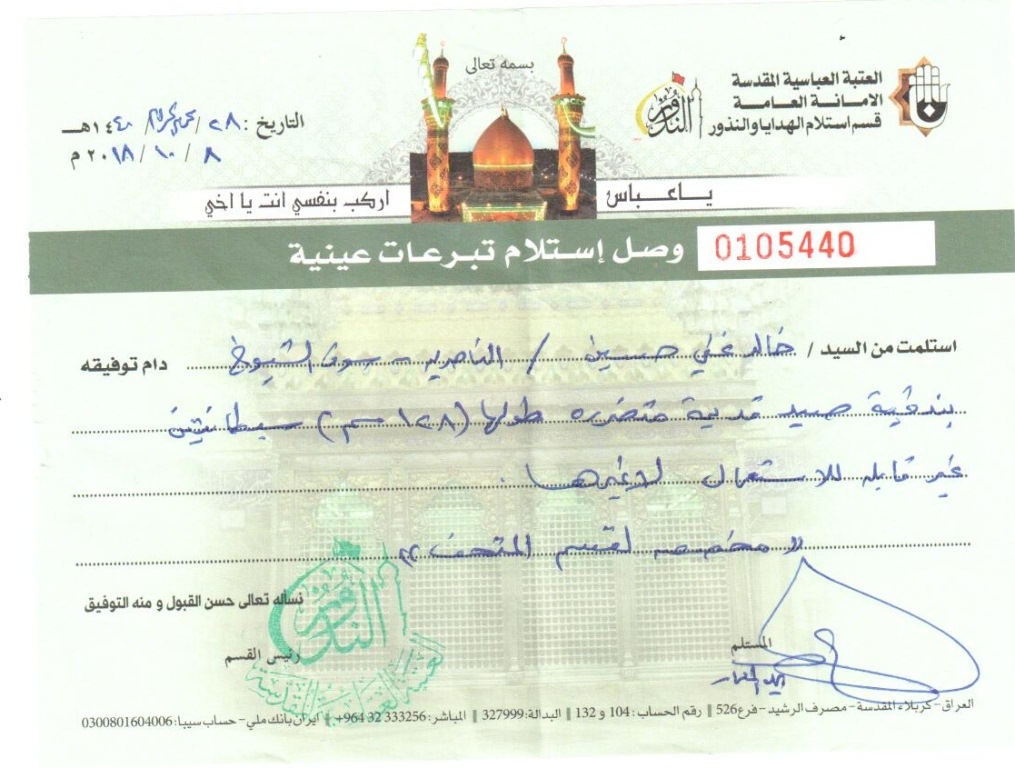 بسمه تعالى
العتبة العباسية المقدسة
الامانة العامة
قسم استلام الهدايا والنذور
النذور
التاريخ : ٢٨ / محرم / ١٤٤٠ هـ
٨ / ١٠ / ٢٠١٨ م
ياعباس
اركب بنفسي انت يا اخي
0105440 وصل إستلام تبرعات عينية
استلمت من السيد / خالد غني حسين / الناصريه - سوق الشيوخ دام توفيقه
بندقية صيد قديمة متضرره طولها (١٢٨ سم) سبطانتين
غير قابله للاستعمال لاغيرها .
" مخصصه لقسم المتحف "
نسأله تعالى حسن القبول و منه التوفيق
المستلم
رئيس القسم
النذور
العتبة العباسية المقدسة
العراق - كربلاء المقدسة - مصرف الرشيد - فرع 526 || رقم الحساب : 104 و 132 || البدالة: 327999 || المباشر: 333256 32 964+ || ايران بانك ملي - حساب سيبا: 0300801604006